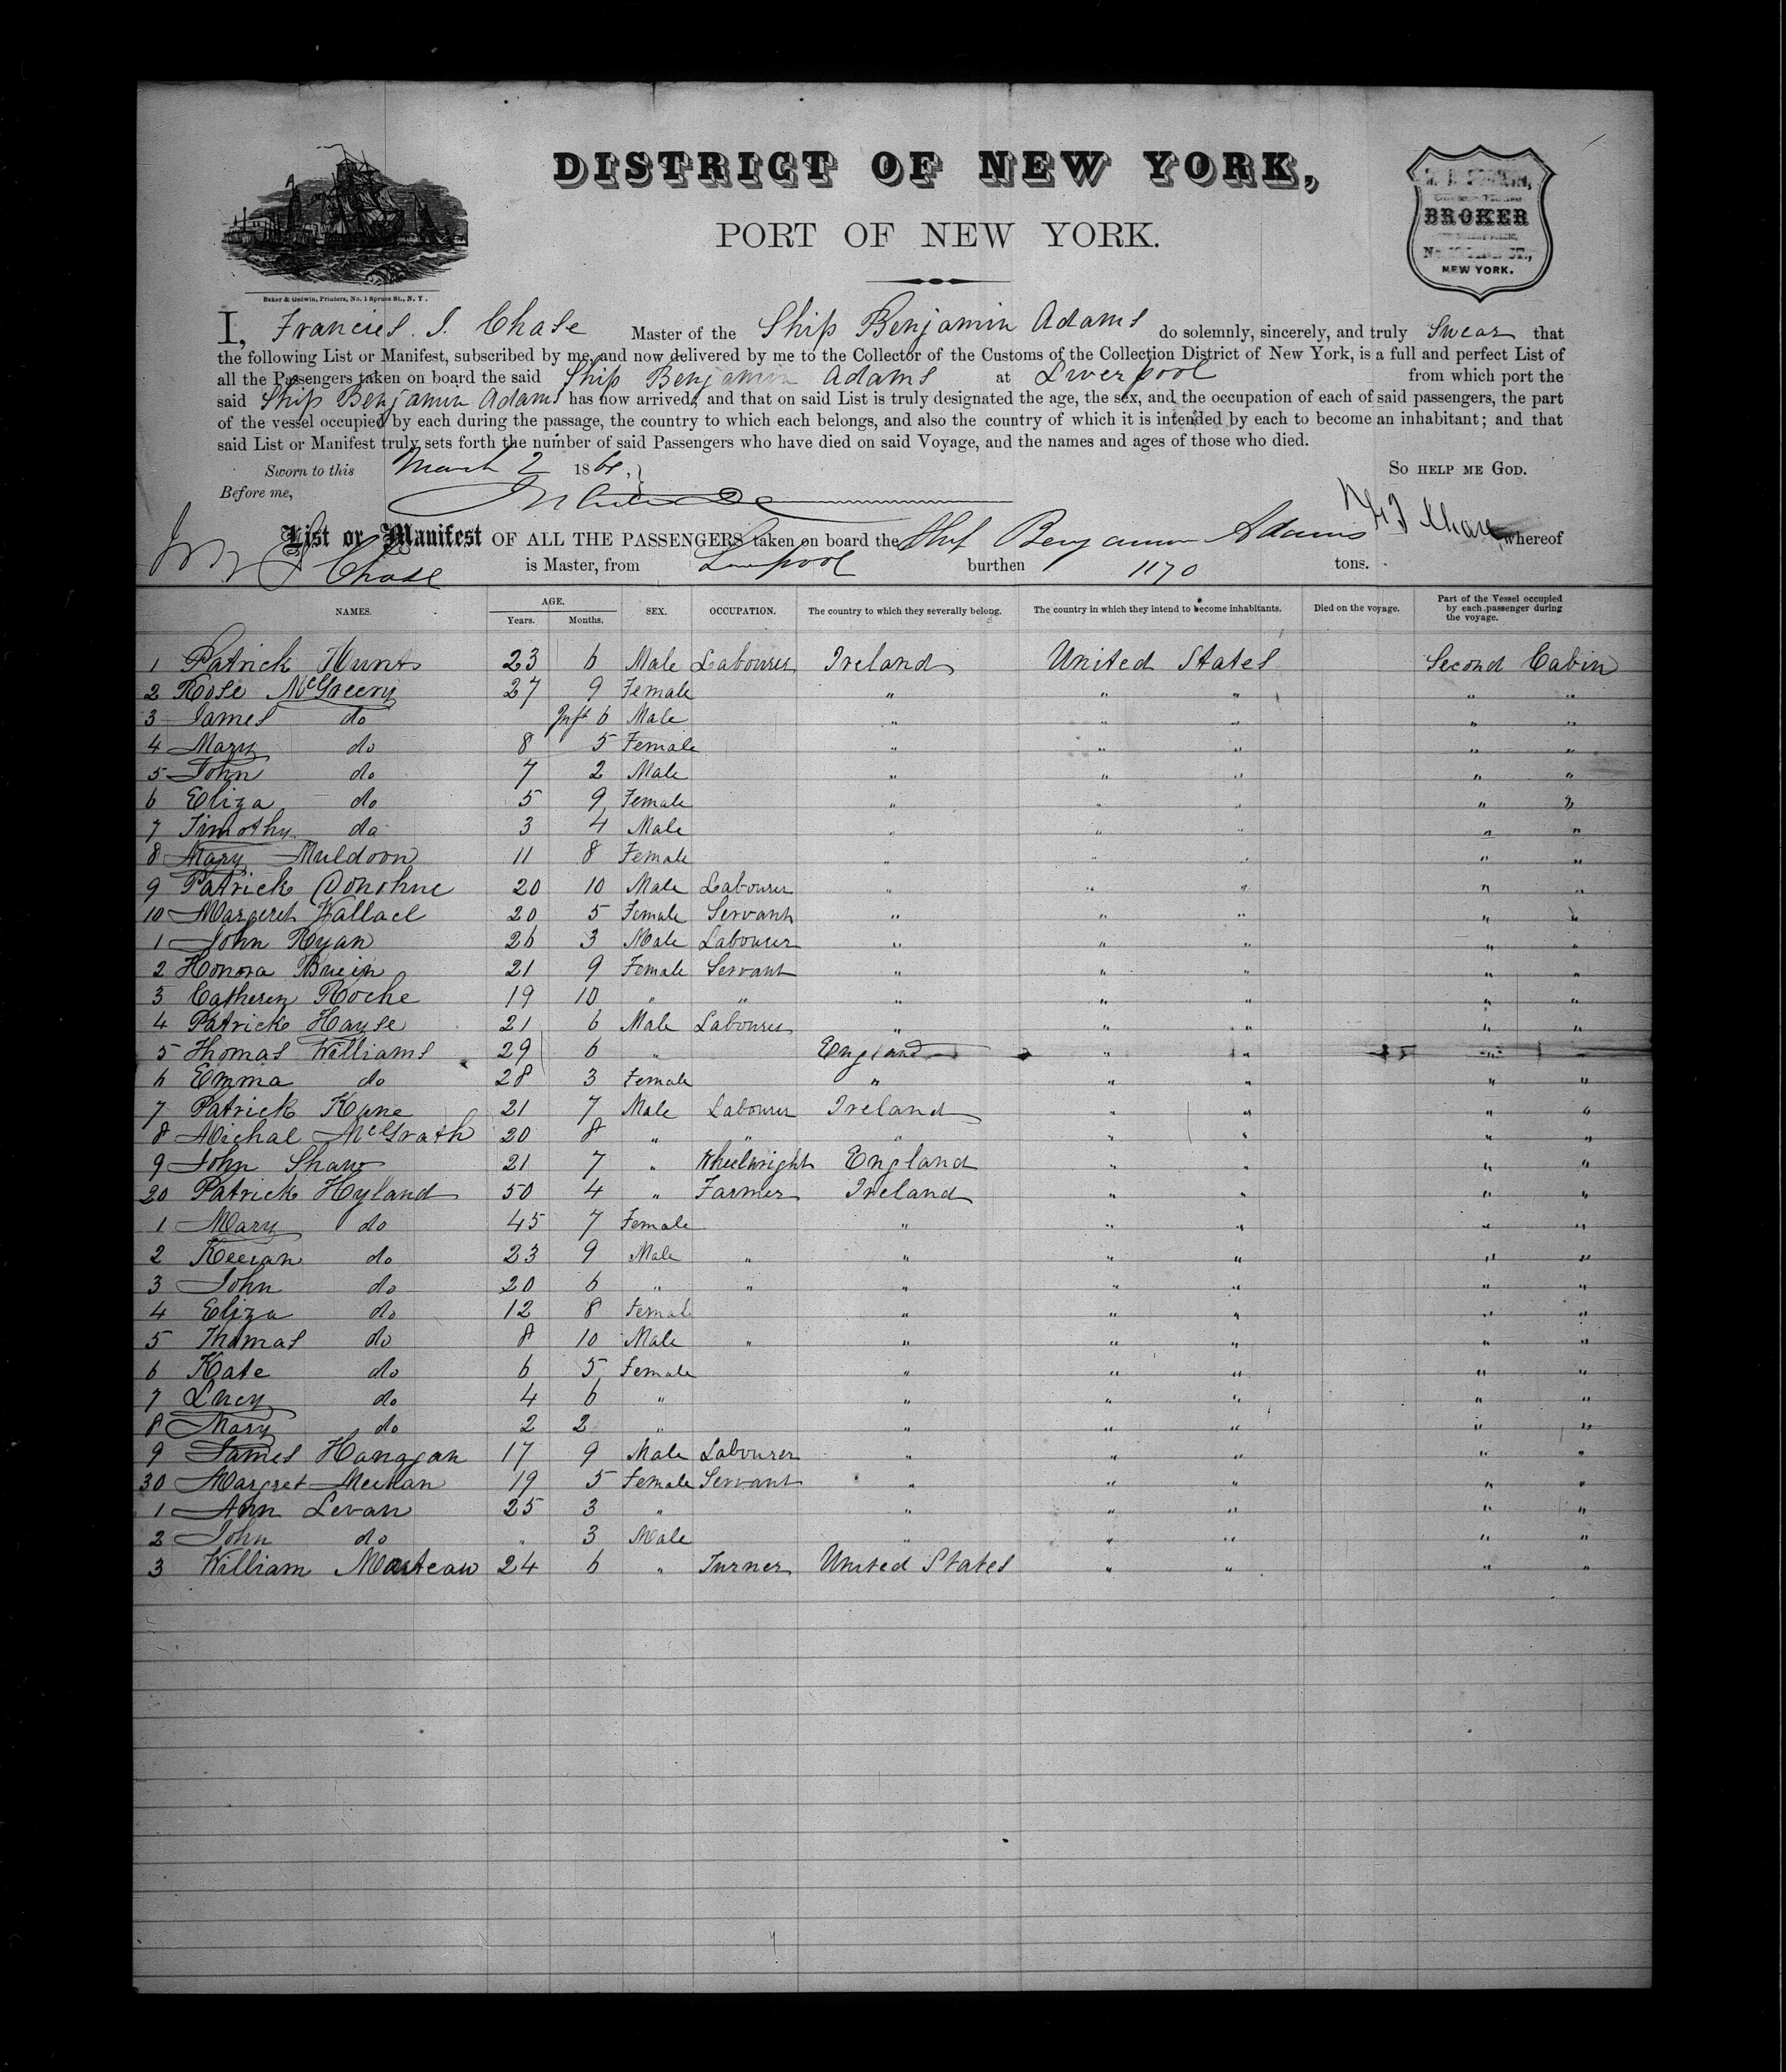 DISTRICT OF NEW YORK,
PORT OF NEW YORK.
BROKER
NEW YORK.
Baker & Godwin, Printers, No. 1 Spruce St., N. Y.
I, Francies. J. Chase Master of the Ship Benjamin Adams do solemnly, sincerely, and truly Swear that
the following List or Manifest, subscribed by me, and now delivered by me to the Collector of the Customs of the Collection District of New York, is a full and perfect List of
all the Passengers taken on board the said Ship Benjamin Adams at Liverpool from which port the
said Ship Benjamin Adams has now arrived; and that on said List is truly designated the age, the sex, and the occupation of each of said passengers, the part
of the vessel occupied by each during the passage, the country to which each belongs, and also the country of which it is intended by each to become an inhabitant; and that
said List or Manifest truly sets forth the number of said Passengers who have died on said Voyage, and the names and ages of those who died.
Sworn to this March 2 186 SO HELP ME GOD.
Before me,
List or Manifest OF ALL THE PASSENGERS taken on board the Ship Benjamin Adams whereof
Chase is Master, from Liverpool burthen 1170 tons.
NAMES. AGE. Years. Months. SEX. OCCUPATION. The country to which they severally belong. The country in which they intend to become inhabitants. Died on the voyage. Part of the Vessel occupied by each passenger during the voyage.
1 Patrick Hunt 23 6 Male Labourer Ireland United States Second Cabin
2 Rose McGreevy 27 9 Female " " " " "
3 James do Inft 6 Male " " " " "
4 Mary do 8 5 Female " " " " "
5 John do 7 2 Male " " " " "
6 Eliza do 5 9 Female " " " " "
7 Timothy do 3 4 Male " " " " "
8 Mary Muldoon 11 8 Female " " " " "
9 Patrick Donohue 20 10 Male Labourer " " " " "
10 Margeret Wallace 20 5 Female Servant " " " " "
1 John Ryan 26 3 Male Labourer " " " " "
2 Honora 21 9 Female Servant " " " " "
3 Catheren Roche 19 10 " " " " " " "
4 Patrick Hayse 21 6 Male Labourer " " " " "
5 Thomas Williams 29 6 " England " " " "
6 Emma do 28 3 Female " " " " "
7 Patrick Kane 21 7 Male Labourer Ireland " " " "
8 Michal McGrath 20 8 " " " " " " "
9 John Shaw 21 7 " Wheelwright England " " " "
20 Patrick Hyland 50 4 " Farmer Ireland " " " "
1 Mary do 45 7 Female " " " " "
2 do 23 9 Male " " " " " "
3 John do 20 6 " " " " " " "
4 Eliza do 12 8 Female " " " " "
5 Thomas do 8 10 Male " " " " " "
6 Kate do 6 5 Female " " " " "
7 Lucy do 4 6 " " " " " "
8 Mary do 2 2 " " " " " "
9 James Hanagan 17 9 Male Labourer " " " " "
30 Margret Meehan 19 5 Female Servant " " " " "
1 Ann Levan 25 3 " " " " " "
2 John do " 3 Male " " " " "
3 William 24 6 " Turner United States " " " "